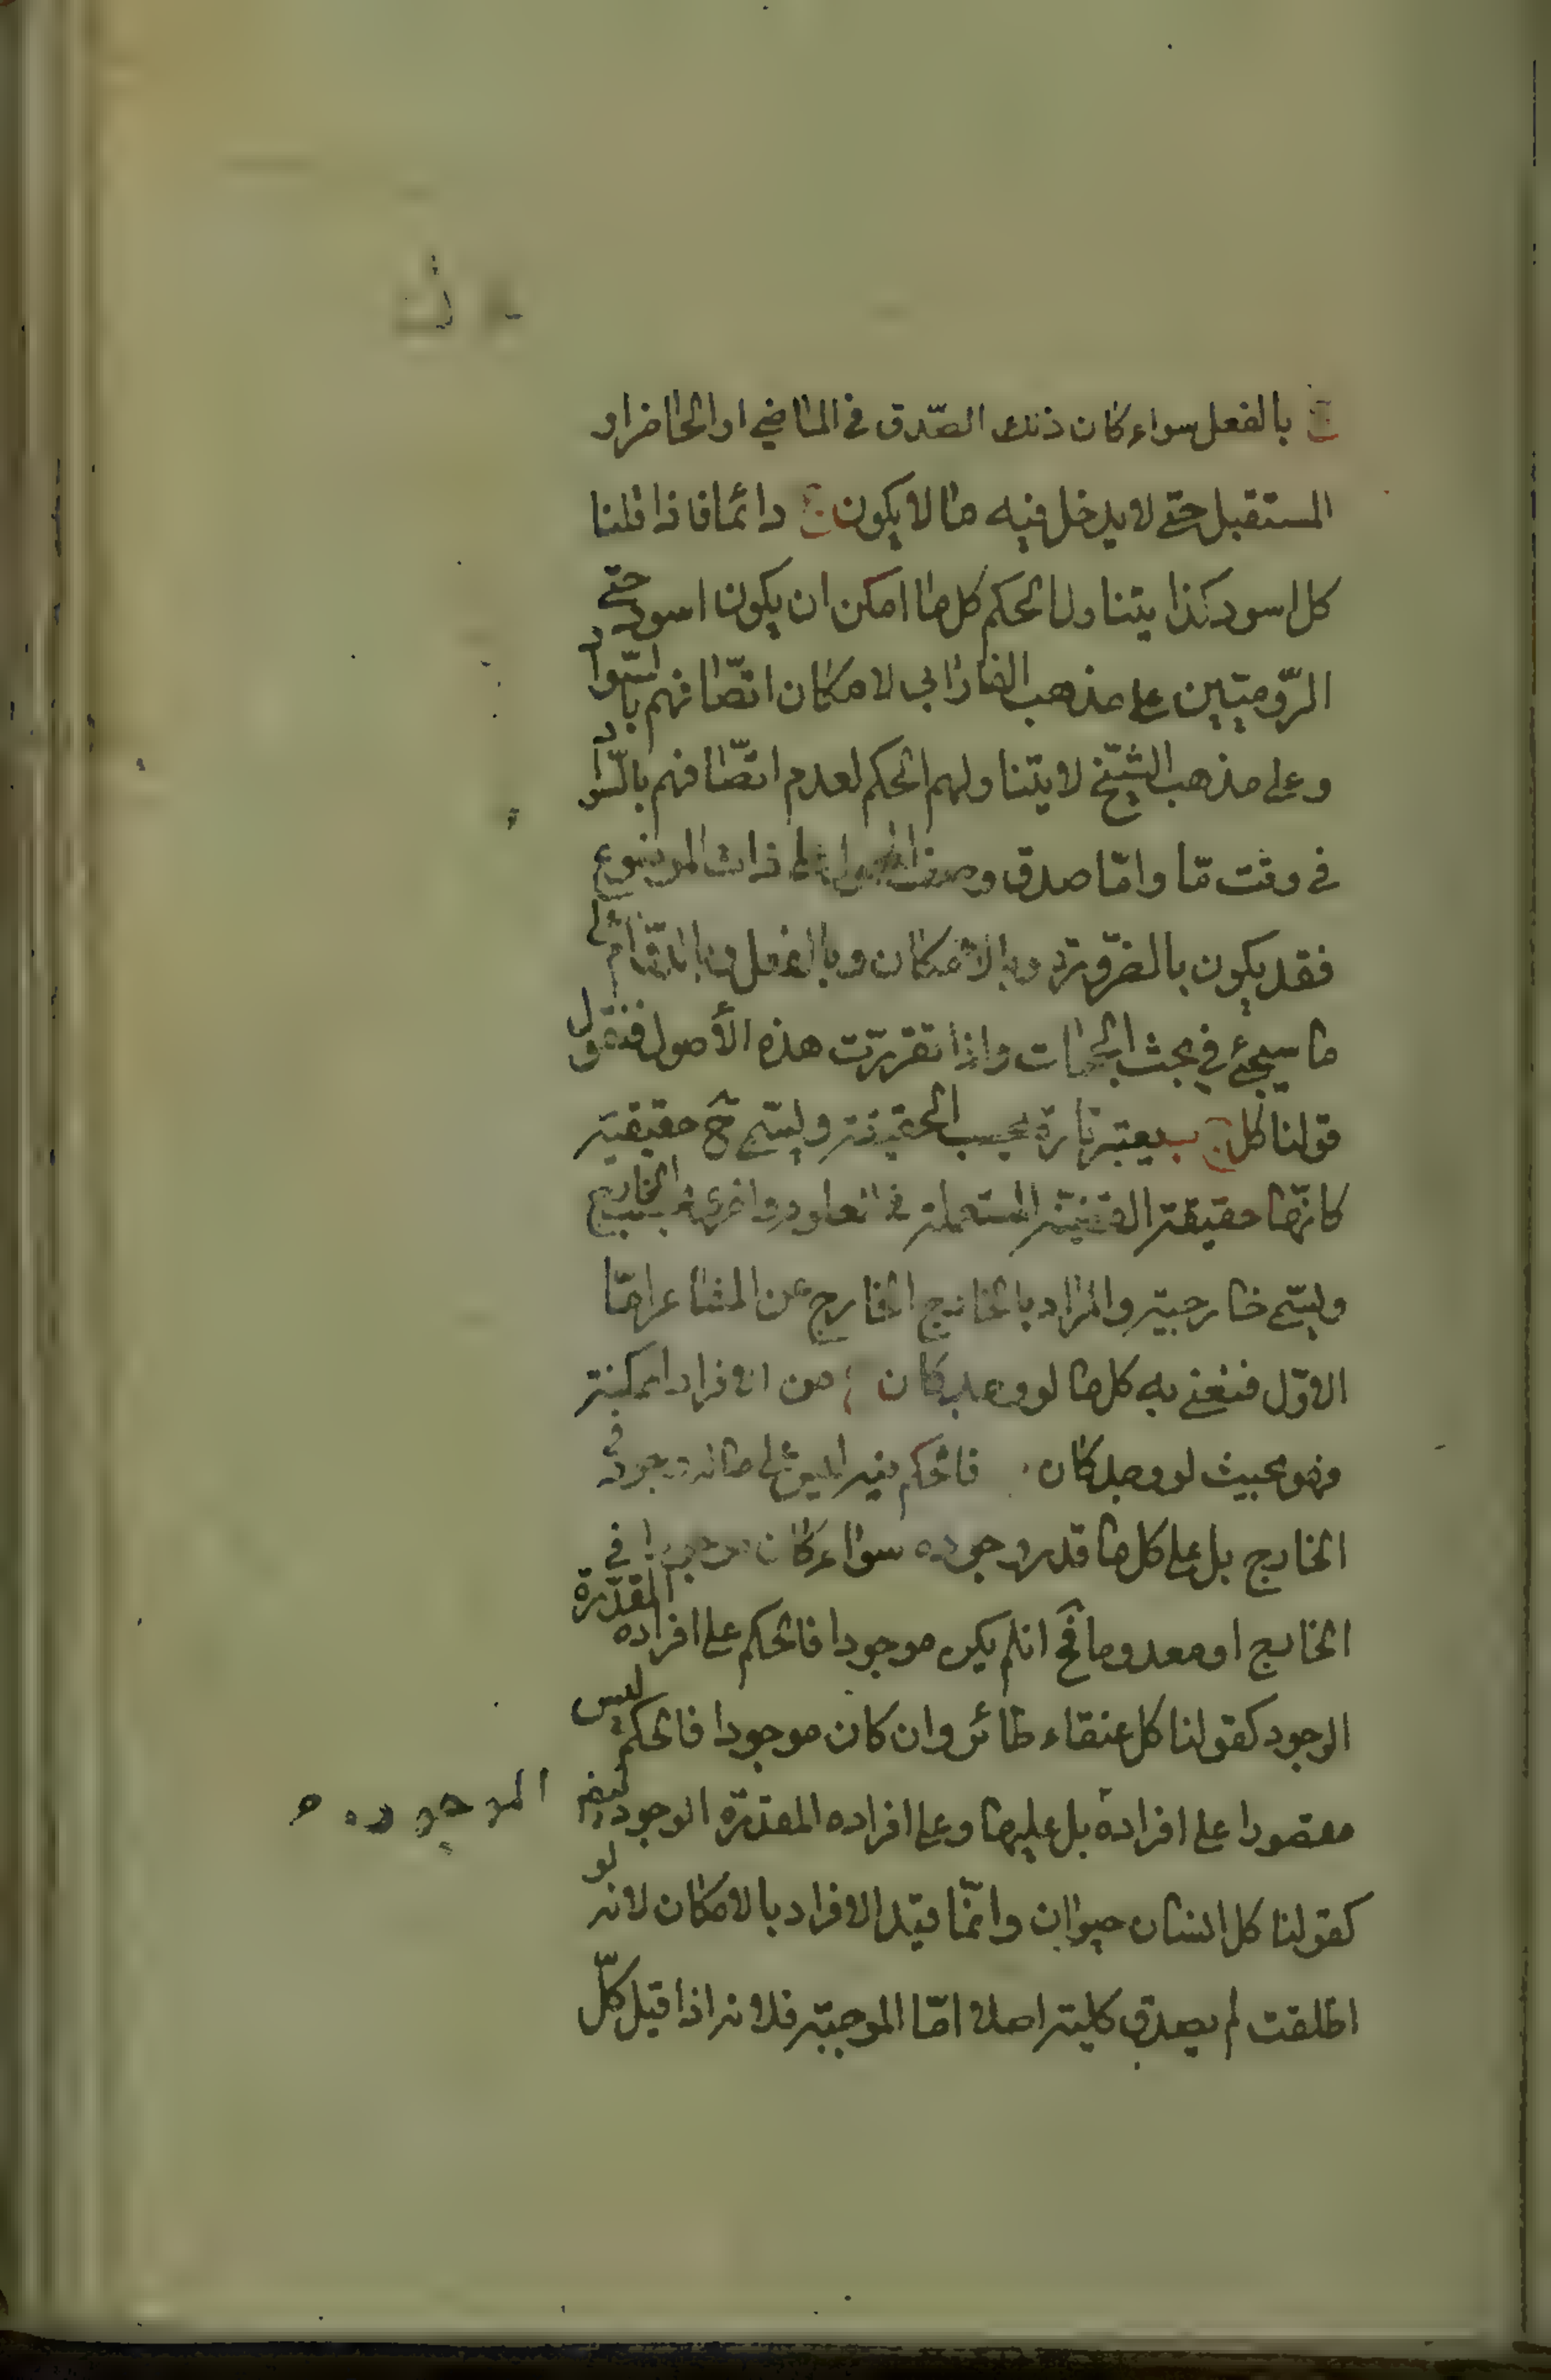 ج بالفعل سواء كان ذلك الصّدق في الماضي او الحاضر او
المستقبل حتى لا يدخل فيه ما لا يكون ج دائما فاذا قلنا
كل اسود كذا يتناول الحكم كل ما امكن ان يكون اسود حتى
الرّوميّين على مذهب الفارابي لامكان اتصّافهم بالسّواد
وعلى مذهب الشيّخ لا يتناولهم الحكم لعدم اتصّافهم بالسّواد
في وقت مّا وامّا صدق وصف المحمول على ذات الموضوع
فقد يكون بالضّرورة وبالامكان وبالفعل وبالدّوام على
ما سيجئ في بحث الجهات واذا تقرّرت هذه الأصول فنقول
قولنا كل ج ب يعتبر تارة بحسب الحقيقة ويسمّى ح حقيقية
كانّها حقيقة القضيّة المستعملة في العلوم واخرى بحسب الخارج
ويسمّى خارجية والمراد بالخارج الخارج عن المشاعر امّا
الاوّل فنعنى به كل ما لو وجد كان ج من الافراد الممكنة
فهو بحيث لو وجد كان فالحكم فيه ليس على ما له وجود في
الخارج بل على كل ما قدر وجوده سواء كان موجودا في
الخارج او معدوما فح ان لم يكن موجودا فالحكم على افراده المقدّرة
الوجود كقولنا كل عنقاء طائر وان كان موجودا فالحكم ليس
مقصورا على افراده بل عليها وعلى افراده المقدّرة الوجود ايضا
الموجوده
كقولنا كل انسان حيوان وانمّا قيّد الافراد بالامكان لانه لو
اطلقت لم يصدق كلية اصلا امّا الموجبة فلانه اذا قيل كلّ